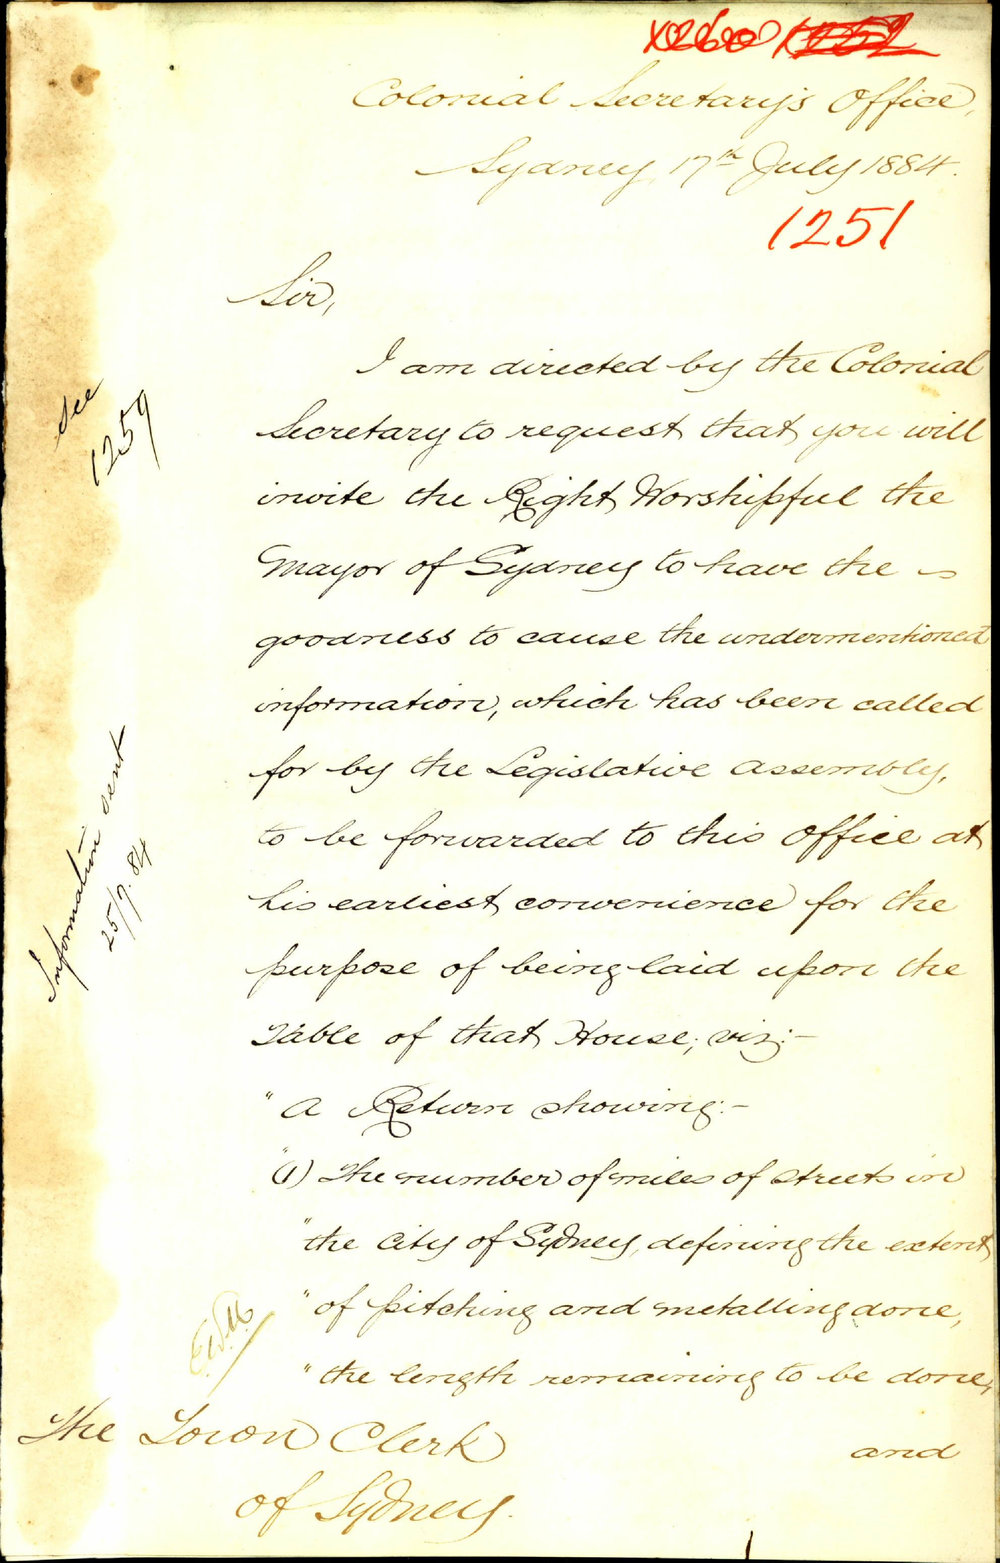 Colonial Secretary's Office,
Sydney, 17th July 1884.
1251
Sir,
I am directed by the Colonial
Secretary to request that you will
invite the Right Worshipful the
Mayor of Sydney to have the
goodness to cause the undermentioned
information, which has been called
for by the Legislative Assembly,
to be forwarded to this Office at
his earliest convenience for the
purpose of being laid upon the
Table of that House; viz:-
"A Return showing:-
"(1) The number of miles of streets in
"the City of Sydney, defining the extent
"of pitching and metalling done,
"the length remaining to be done,
and
The Town Clerk
of Sydney.
See
1259
Information sent
25/7.84